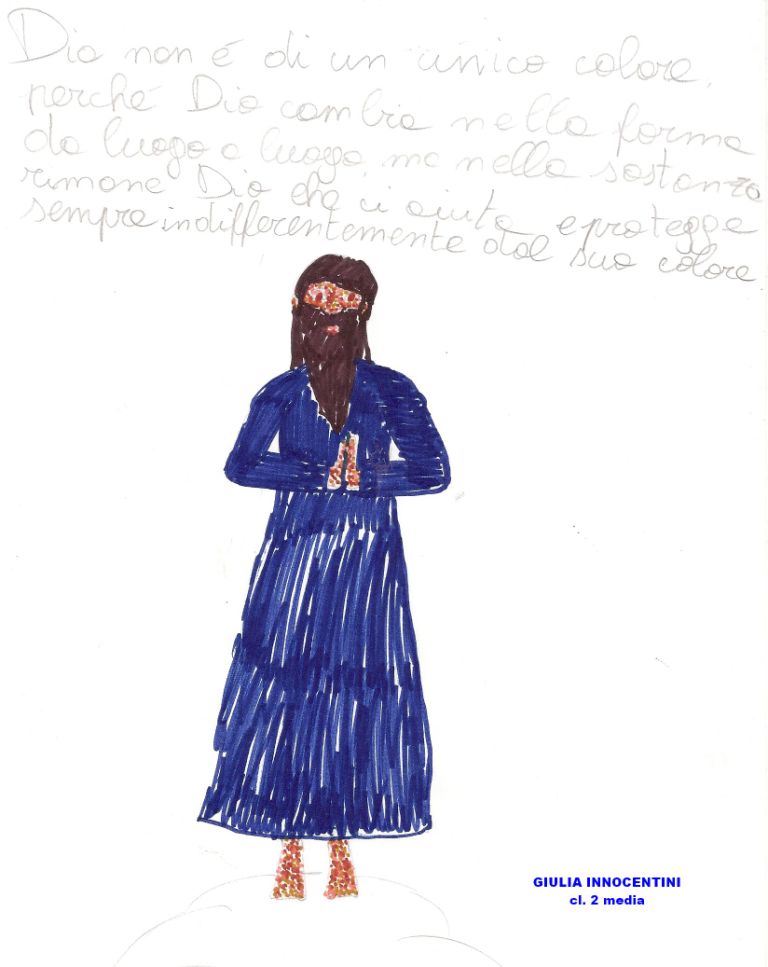 Dio non é di un unico colore,
perché Dio cambia nella forma
da luogo a luogo, ma nella sostanza
rimane Dio che ci aiuta e protegge
sempre indifferentemente dal suo colore
GIULIA INNOCENTINI
cl. 2 media